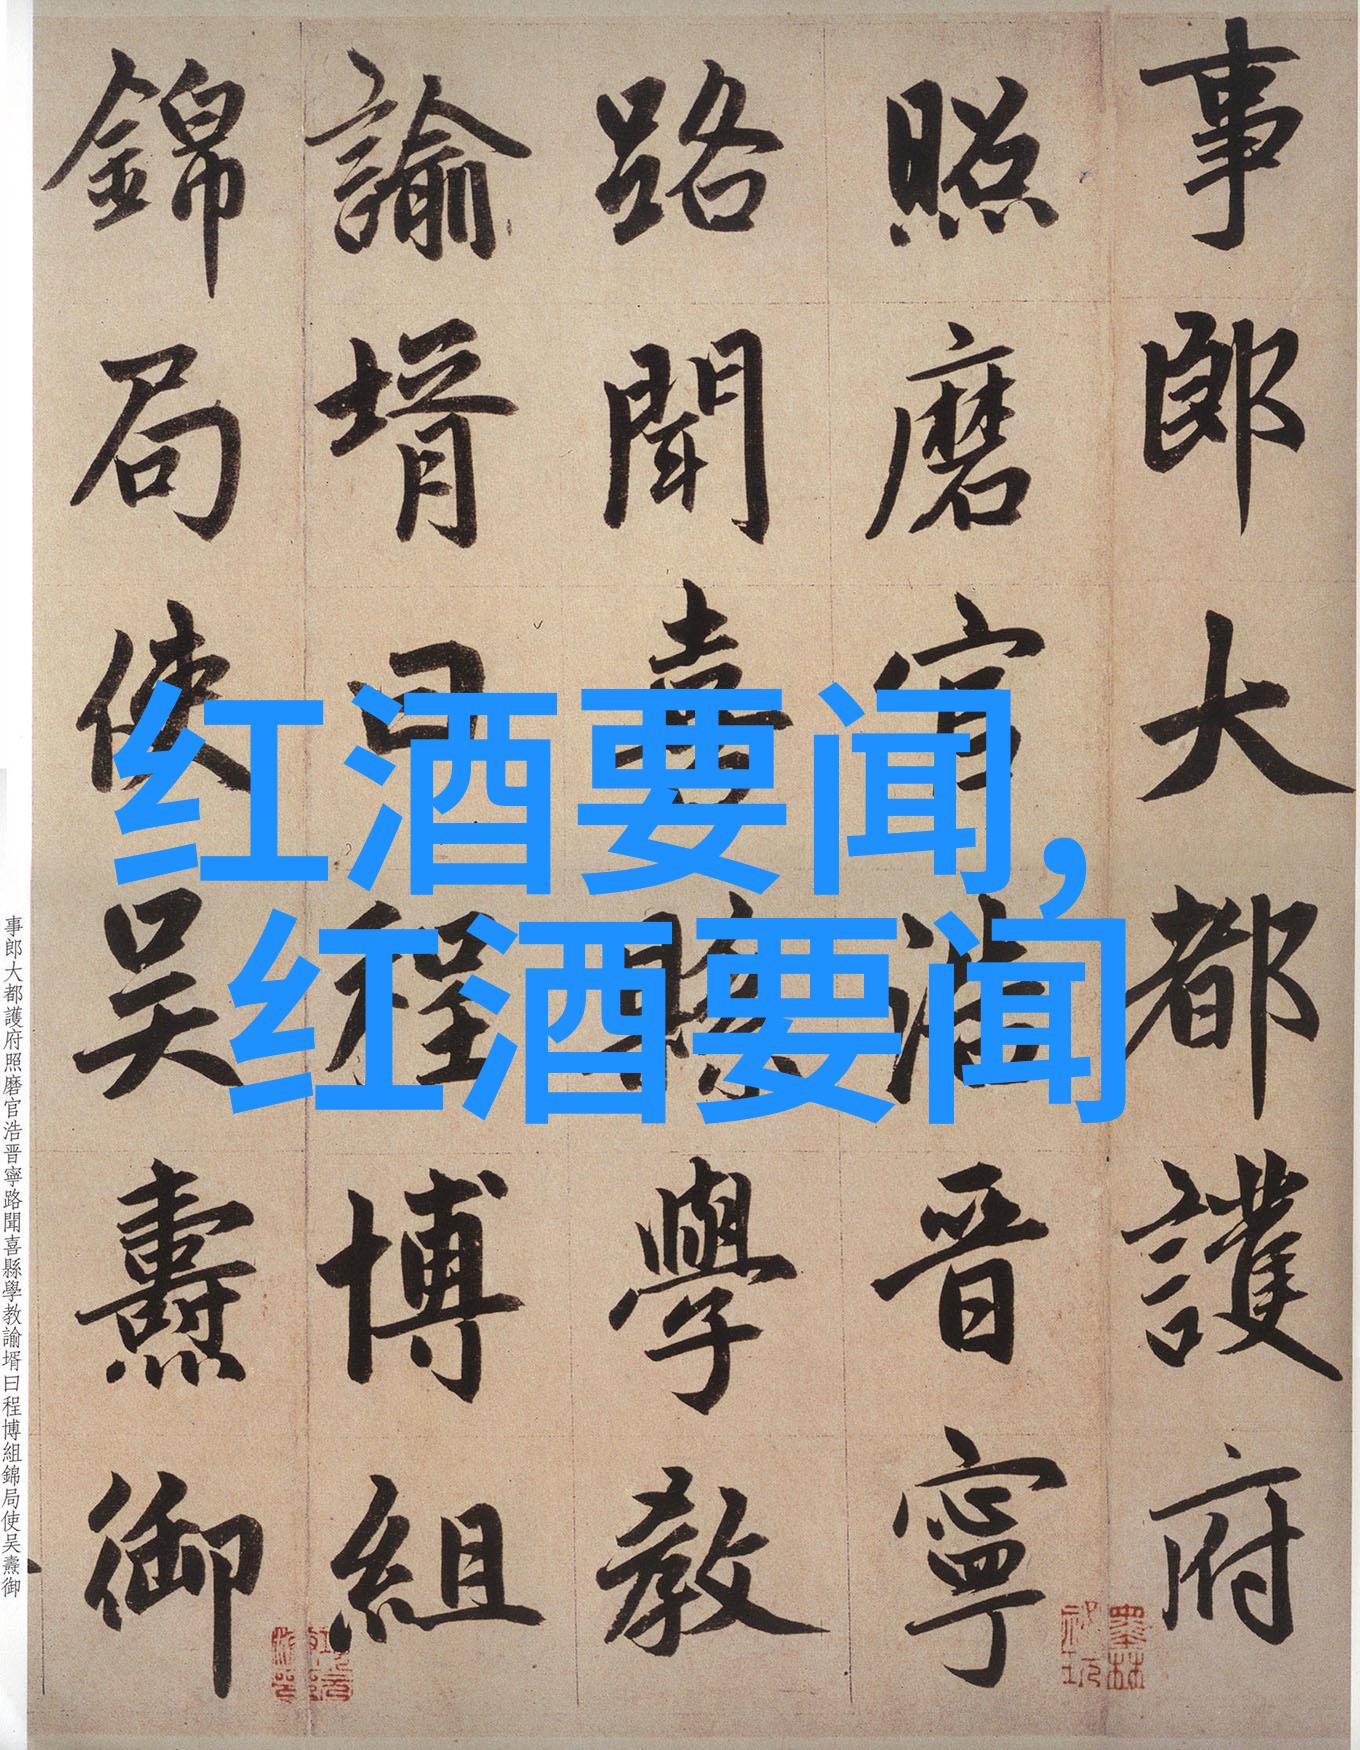 事郎大都護府
照磨官浩晋寧
路聞喜縣學教
諭壻曰程博組
錦局使吴燾御
红酒要闻,
红酒要闻
事郎大都護府照磨官浩晋寧路聞喜縣學教諭壻曰程博組錦局使吴燾御